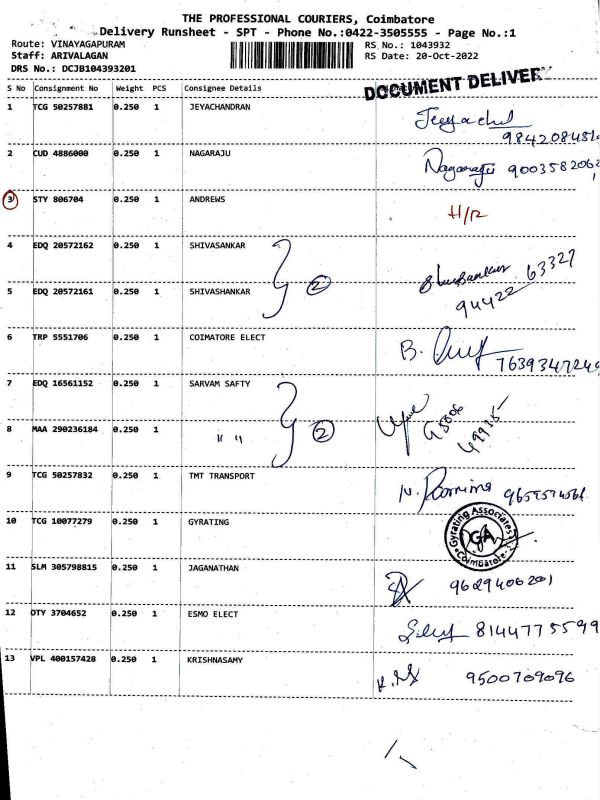 THE PROFESSIONAL COURIERS, Coimbatore
Delivery Runsheet - SPT - Phone No.:0422-3505555 - Page No.:1
Route: VINAYAGAPURAM RS No.: 1043932
Staff: ARIVALAGAN RS Date: 20-Oct-2022
DRS No.: DCJB104393201
DOCUMENT DELIVERY
S No Consignment No Weight PCS Consignee Details
1 TCG 50257881 0.250 1 JEYACHANDRAN
984208451
2 CUD 4886000 0.250 1 NAGARAJU Nagaraju 9003582062
3 STY 806704 0.250 1 ANDREWS H/R
4 EDQ 20572162 0.250 1 SHIVASANKAR
2 63327
5 EDQ 20572161 0.250 1 SHIVASHANKAR 94422
6 TRP 5551706 0.250 1 COIMATORE ELECT B.
7639347249
7 EDQ 16561152 0.250 1 SARVAM SAFTY
8 MAA 290236184 0.250 1 " " 2
9 TCG 50257832 0.250 1 TMT TRANSPORT N.
10 TCG 10077279 0.250 1 GYRATING Gyrating Associates GA Coimbatore
11 SLM 305798815 0.250 1 JAGANATHAN 9629406201
12 OTY 3704652 0.250 1 ESMO ELECT 8144775599
13 VPL 400157428 0.250 1 KRISHNASAMY 9500709096